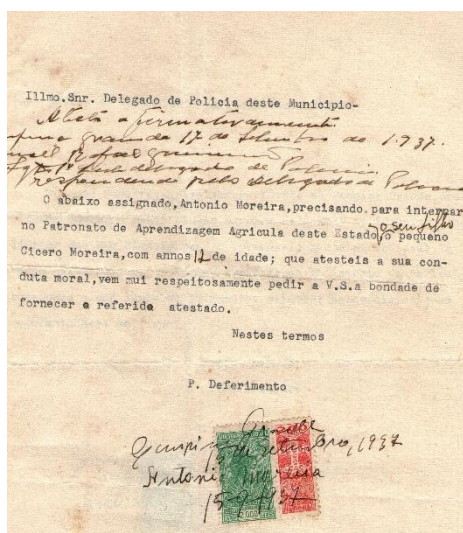 Illmo.Snr. Delegado de Policia deste Municipio-
Atesto afirmativamente
grande 17 de Setembro de 1.937.
delegado de Policia
respondendo pelo delegado de Policia
O abaixo assignado, Antonio Moreira, precisando para internar
no Patronato de Aprendizagem Agricula deste Estado, o seu filho o pequeno
Cicero Moreira, com annos 12 de idade; que atesteis a sua con-
duta moral, vem mui respeitosamente pedir a V.S.a bondade de
fornecer o referido atestado.
Nestes termos
P. Deferimento
Campina Grande
15 de setembro, 1937
Antonio Moreira
15-9-1937